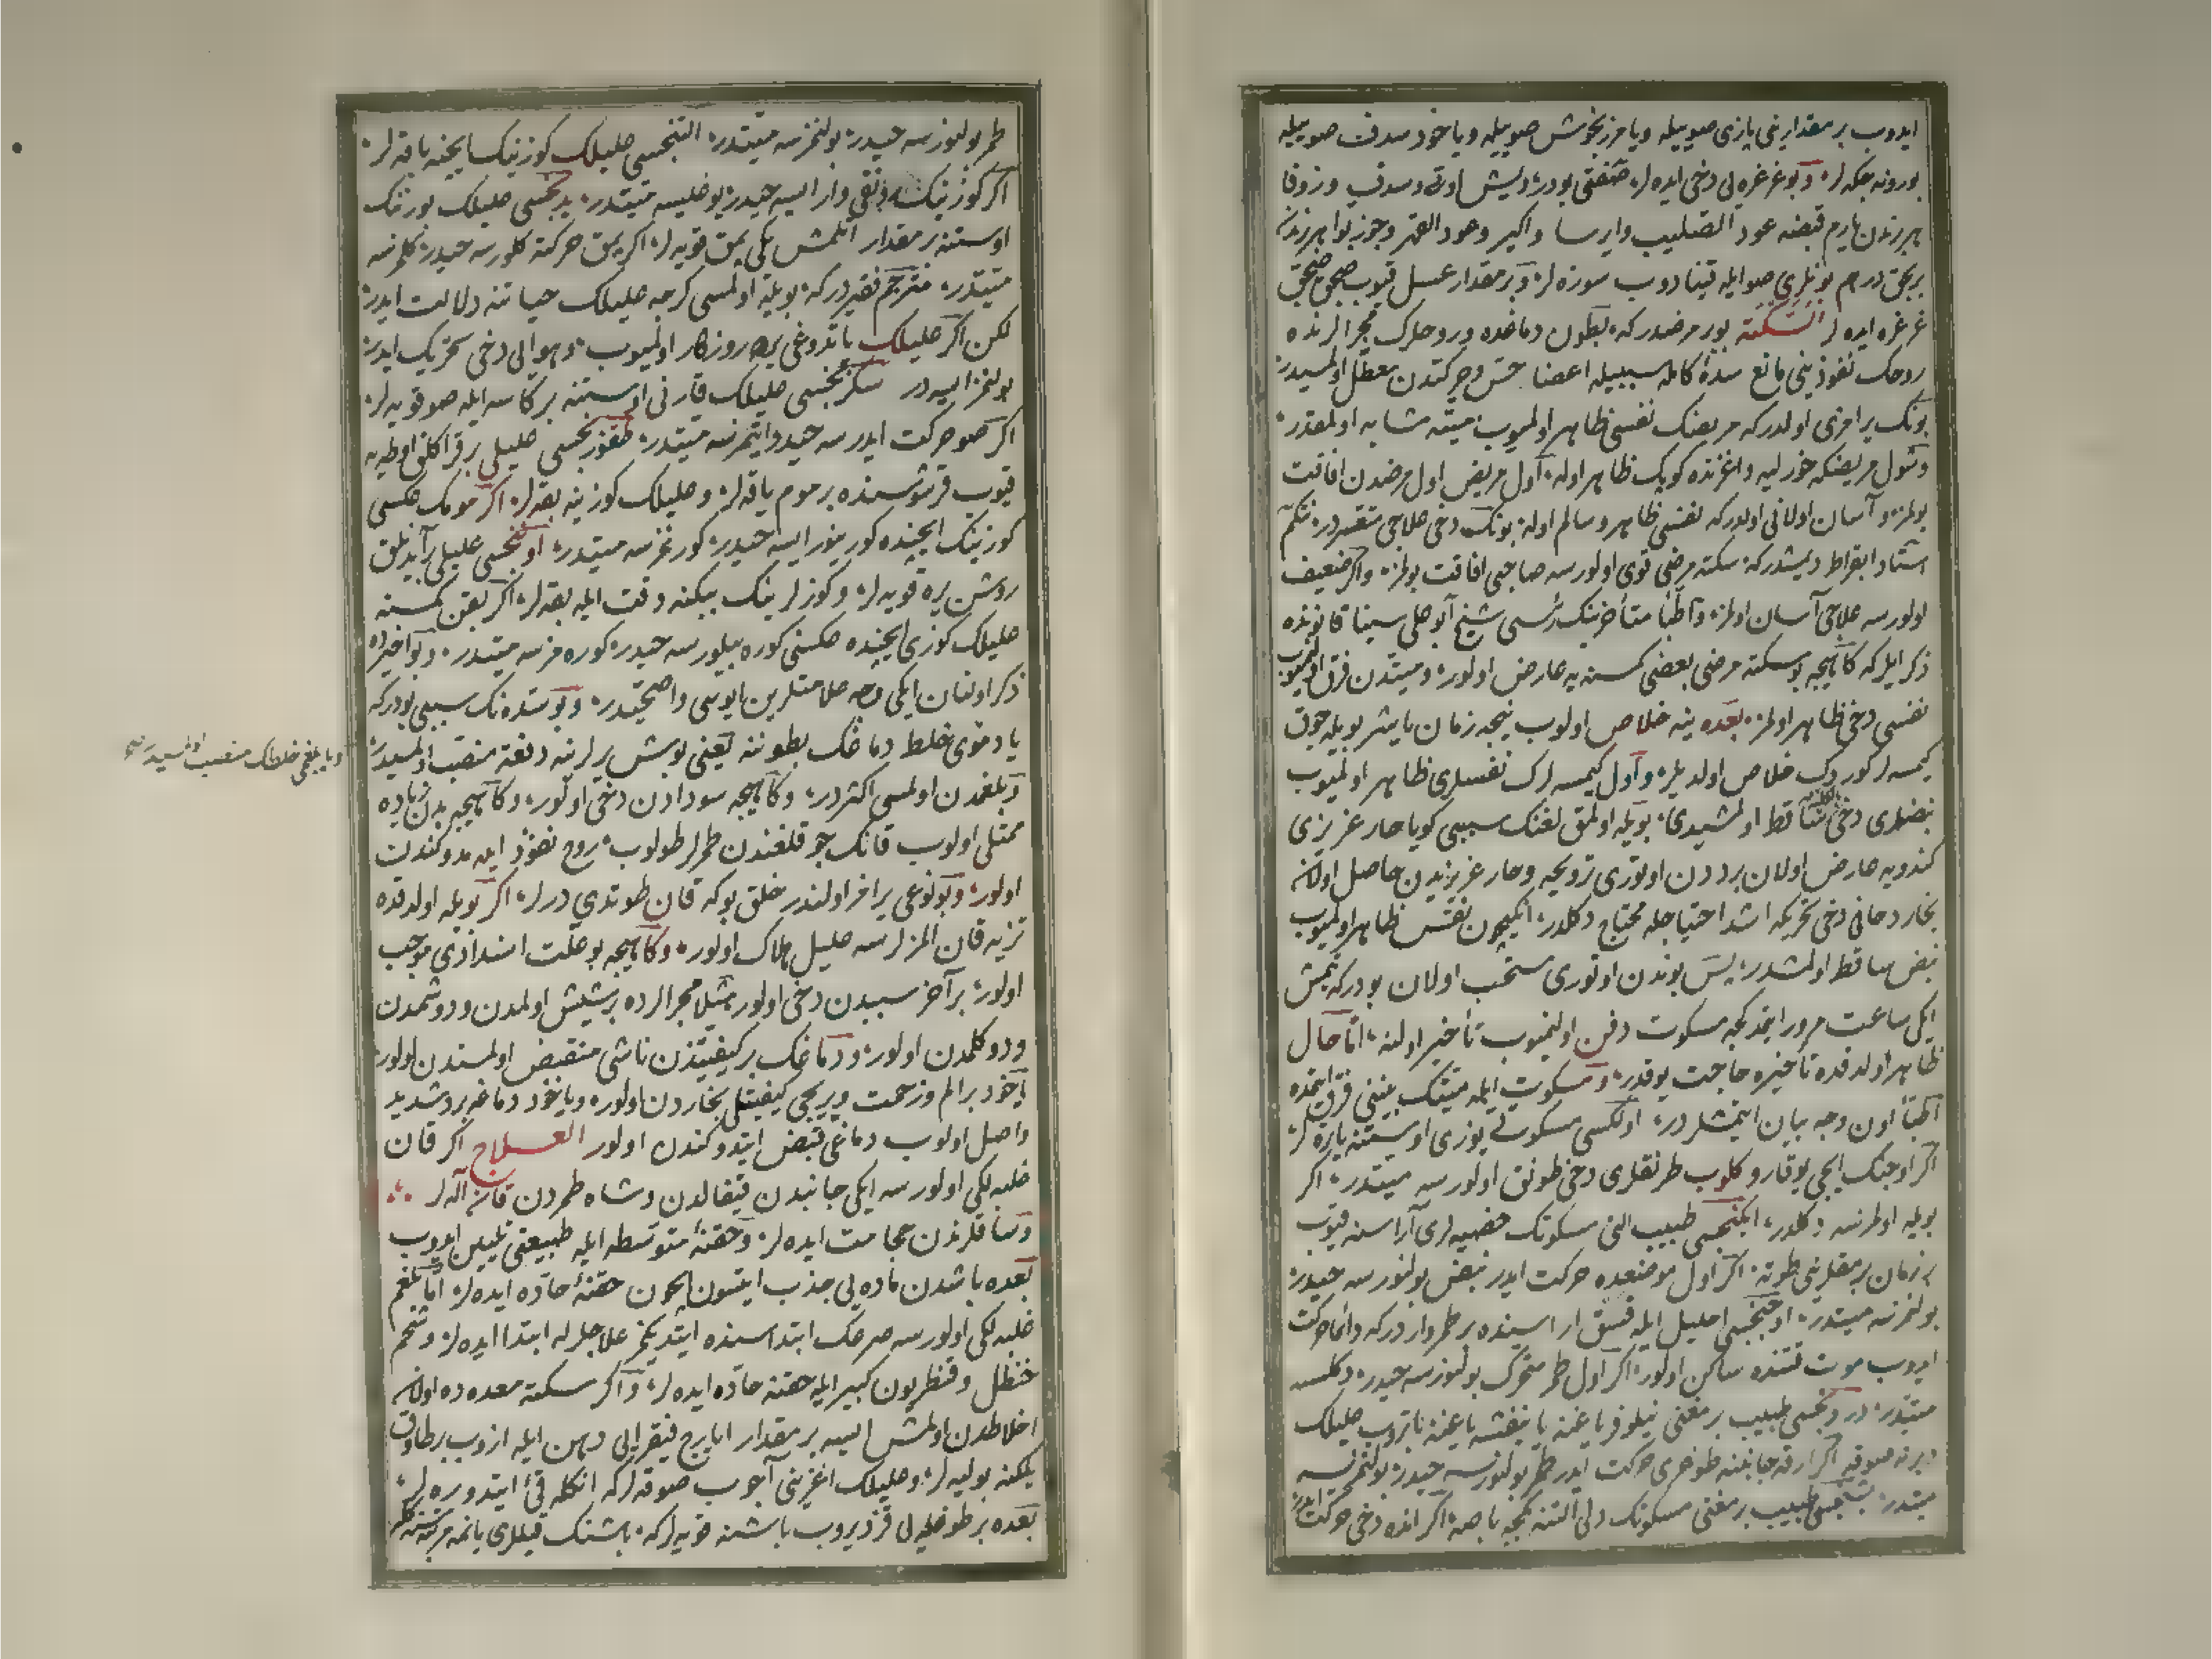 ایدوب بر مقدارینی یازی صوییله ویا مرزنجوش صوییله ویاخود سدف صوییله
بورونه چکه لر وبو غرغره یی دخی ایده لر صفتی بودر دیش اوتی وسدف وزوفا
هر برندن یارم قبضه عود الصلیب وایرسا واکیر وعود القهر وجوز بوا هر برندن
بر بچق درهم بونلری صو ایله قینادوب سوزه لر وبر مقدار عسل قیوب صیجق صیجق
غرغره ایده لر السکته بور مرضدر که بطون دماغده وروحلرک مجرالرنده
روحک نفوذینی مانع سدۀ کامله سببیله اعضا حس وحرکتدن معطل اولمسیدر
بونک یرامزی اولدر که مریضک نفسی ظاهر اولمیوب میته مشابه اولمقدر
وشول مریضکه خورلیه واغزنده کوپک ظاهر اوله اول مریض اول مرضدن افاقت
بولمز وآسان اولانی اولدر که نفسی ظاهر وسالم اوله بونک دخی علاجی متعسردر نتکم
استاد ابقراط دیمشدر که سکته مرضی قوی اولورسه صاحبی افاقت بولمز واکر ضعیف
اولورسه علاجی آسان اولمز واطبا متأخرینک رئیسی شیخ ابو علی سینا قانونده
ذکر ایلر که کاهیجه بو سکته مرضی بعضی کمسنه یه عارض اولور ومیتدن فرق اولنمیوب
نفسی دخی ظاهر اولمز بعده ینه خلاص اولوب نیجه زمان یاشر بویله چوق
کیمسه لر کوردک خلاص اولدیلر واول کیمسه لرک نفسلری ظاهر اولمیوب
نبضلری دخی ساقط اولمشیدی بویله اولمقلغنک سببی کویا حار عزیزی
کندویه عارض اولان برددن اوتوری ترویحه وحار عزیزیدن حاصل اولان
بخار دخانی دخی تحریکه اشد احتیاجله محتاج دکلدر انکیچون نفس ظاهر اولمیوب
نبض ساقط اولمشدر پس بوندن اوتوری مستحب اولان بودر که یتمش
ایکی ساعت مرور ایتمدکجه مسکوت دفن اولنمیوب تأخیر اولنه اما حال
ظاهر اولدقده تأخیره حاجت یوقدر ومسکوت ایله میتک بیننی فرق ایتمده
اطبا اون وجه بیان ایتمشلردر اولکیسی مسکوتی یوزی اوستنه یاتره لر
اکر اوجنک ایچی یوقارو کلوب طرنقلری دخی طونق اولورسه میتدر اکر
بویله اولمزسه دکلدر ایکنجیسی طبیب النی مسکوتک خصیه لری آراسنه قیوب
بر زمان بر مقعدینی طوته اکر اول موضعده حرکت ایدر نبض بولنورسه حیدر
بولنمزسه میتدر اوچنجیسی احلیل ایله فسق اراسنده بر طمر واردر که دائما حرکت
ایدوب موت وقتنده ساکن اولور اکر اول طمر متحرک بولنورسه حیدر دکلسه
میتدر دردنجیسی طبیب برمغنی نیلوفر یاغنه یا بنفشه یاغنه باتروب علیلک
دبرنه صوقه اکر ارقه جانبنه طوغری حرکت ایدر طمر بولنورسه حیدر بولنمزسه
میتدر بشنجیسی طبیب برمغنی مسکوتک دلی التنه کیجه باصه اکر انده دخی حرکت ایدر
طمر بولنورسه حیدر بولنمزسه میتدر التنجیسی علیلک کوزینک ایچنه باقه لر
اکر کوزینک رونقی وار ایسه حیدر یوغیسه میتدر یدنجیسی علیلک بورننک
اوستنه بر مقدار اتلمش یکی پمق قویه لر اکر پمق حرکته کلورسه حیدر کلمزسه
میتدر مترجم فقیر در که بویله اولمسی کرچه علیلک حیاتنه دلالت ایدر
لکن اکر علیلک یاتدوغی یره روزکار اولمیوب وهوایی دخی تحریک ایدر
بولنمز ایسه در سکزنجیسی علیلک قارنی اوستنه بر کاسه ایله صو قویه لر
اکر صو حرکت ایدرسه حیدر ایتمزسه میتدر طقوزنجیسی علیلی بر قراکلق اوطه یه
قیوب قرشوسنده بر موم یاقه لر وعلیلک کوزینه بقه لر اکر مومک عکسی
کوزینک ایچنده کورینور ایسه حیدر کورنمزسه میتدر اوننجیسی علیلی آیدنلق
روشن یره قویه لر وکوزلرینک ببکنه دقت ایله بقه لر اکر بقن کمسنه
علیلک کوزی ایچنده عکسنی کوره بیلورسه حیدر کوره مزسه میتدر وبو اخیرده
ذکر اولنان ایکی وجه علامتلرین ایوسی واصحیدر وبو سده نک سببی بودر که
یا دموی خلط دماغک بطوننه یعنی بوش یرلرینه دفعة منصب اولمسیدر
ویا بلغمی خلطک منصب اولمسیدر
وبلغمدن اولمسی اکثردر وکاهیجه سودادن دخی اولور وکاهیجه بدن زیاده
ممتلی اولوب قانک چوقلغندن طمرلر طولوب روح نفوذ ایده مدوکندن
اولور وبو نوعی یرامز اولندر خلق بوکه قان طوتدی درلر اکر بویله اولدقده
تزیه قان المزلرسه علیل هلاک اولور وکاهیجه بو علت انسدادی موجب
اولور بر آخر سببدن دخی اولور مثلا مجرالرده بر شیش اولمدن ودوشمدن
ودوکلمدن اولور ودماغک بر کیفیتدن ناشی منقبض اولمسندن اولور
یاخود بر الم وزحمت ویریجی کیفیتلی بخاردن اولور ویاخود دماغه برد شدید
واصل اولوب دماغی قبض ایتدوکندن اولور العلاج اکر قان
غلبه لکی اولورسه ایکی جانبدن قیفالدن وشاه طمردن قان آله لر
وساقلرندن حجامت ایده لر وحقنۀ متوسطه ایله طبیعتی تلیین ایدوب
بعده باشدن ماده یی جذب ایتسون ایچون حقنۀ حاده ایده لر اما بلغم
غلبه لکی اولورسه صرعک ابتداسنده ایتدیکمز علاجلرله ابتدا ایده لر وشحم
حنظل وقنطریون کبیر ایله حقنه حاده ایده لر واکر سکته معده ده اولان
اخلاطدن اولمش ایسه بر مقدار ایارج فیقرایی دهن ایله ازوب بر طاوق
یلکنه بولیه لر وعلیلک اغزینی آچوب صوقه لر که انکله قئ ایتدوره لر
بعده بر طوغله یی قزدیروب باشنه قویه لر که باشنک قیللری یانه